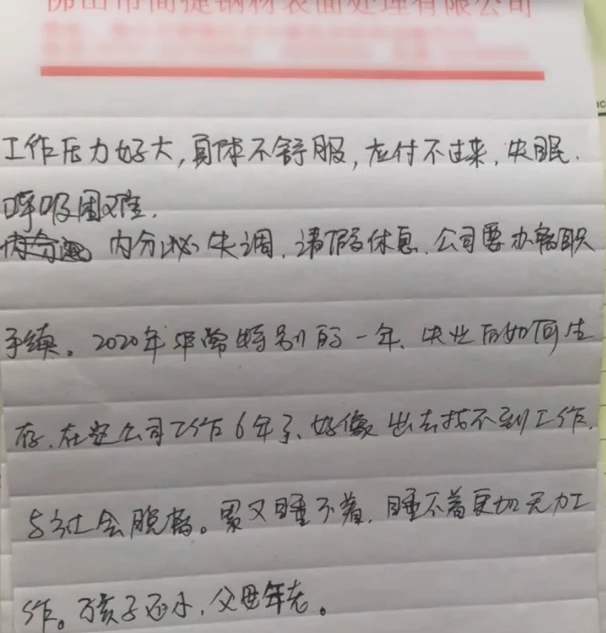 佛山市简捷钢材表面处理有限公司
工作压力好大,身体不舒服,应付不过来,失眠.
呼吸困难.
内分泌失调.请假休息.公司要办离职
手续。2020年非常特别的一年、失业后如何生
存.在空公司工作6年了、好像出去找不到工作.
与社会脱离。累又睡不着.睡不着更加无力工
作。孩子还小.父母年老。